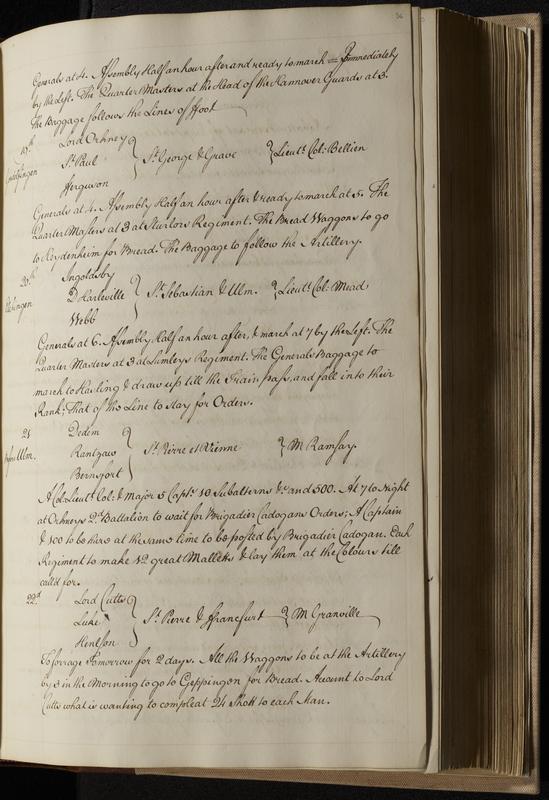 36
Generals at 4. Assembly Half an hour after and ready to march = Immediately
by the Left. The Quarter Masters at the Head of the Hannover Guards at 3.
The Baggage follows the Lines of Foot
19th Lord Orkney
St. Paul } St. George & Grave } Lieut. Col: Bellien
Ferguson
Generals at 4. Assembly Half an hour after & ready to march at 5. The
Quarter Masters at 3 at Sturlors Regiment. The Bread Waggons to go
to Heydenheim for Bread. The Baggage to follow the Artillery.
20th Ingoldsby
D'Harleville } St. Sebastian & Ulm. } Lieut. Col: Mead
Webb
Generals at 6. Assembly Half an hour after, & march at 7 by the Left. The
Quarter Masters at 3 at Lumleys Regiment. The Generals Baggage to
march to Hasling & draw up till the Train pass, and fall into their
Rank; That of the Line to stay for Orders.
21 Dedem
before Ulm. Rantzaw } St. Pierre et Vienne } M Ramsay.
Bernsfort
A Col: Lieut. Col: & Major 5 Capts. 10 Subalterns &c. and 500. At 7 to Night
at Orkneys 2d. Battalion to wait for Brigadier Cadogans Orders; A Captain
& 100 to be here at the same time to be posted by Brigadier Cadogan. Each
Regiment to make 12 great Malletts & lay them at the Colours till
call'd for.
22d Lord Cutts
Luke } St. Pierre & Francfurt } M Granville
Heulson
To forrage Tomorrow for 2 days. All the Waggons to be at the Artillery
by 3 in the Morning to go to Geppingen for Bread. Account to Lord
Cutts what is wanting to compleat 24 Shott to each Man.